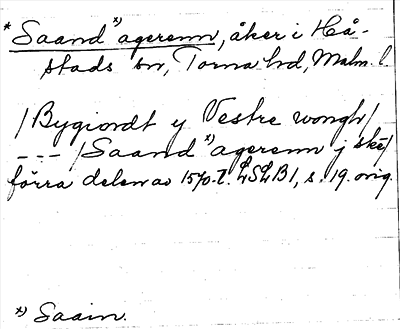 * Saand *) agerenn, åker i Hå-
stads sn, Torna hd, Malm. l.
/Bygiordt y Vestre wongh/
--- /Saand *) agerenn j ske/
förra delen av 1570-t. LSLB1, s. 19. orig.
*) Saain.